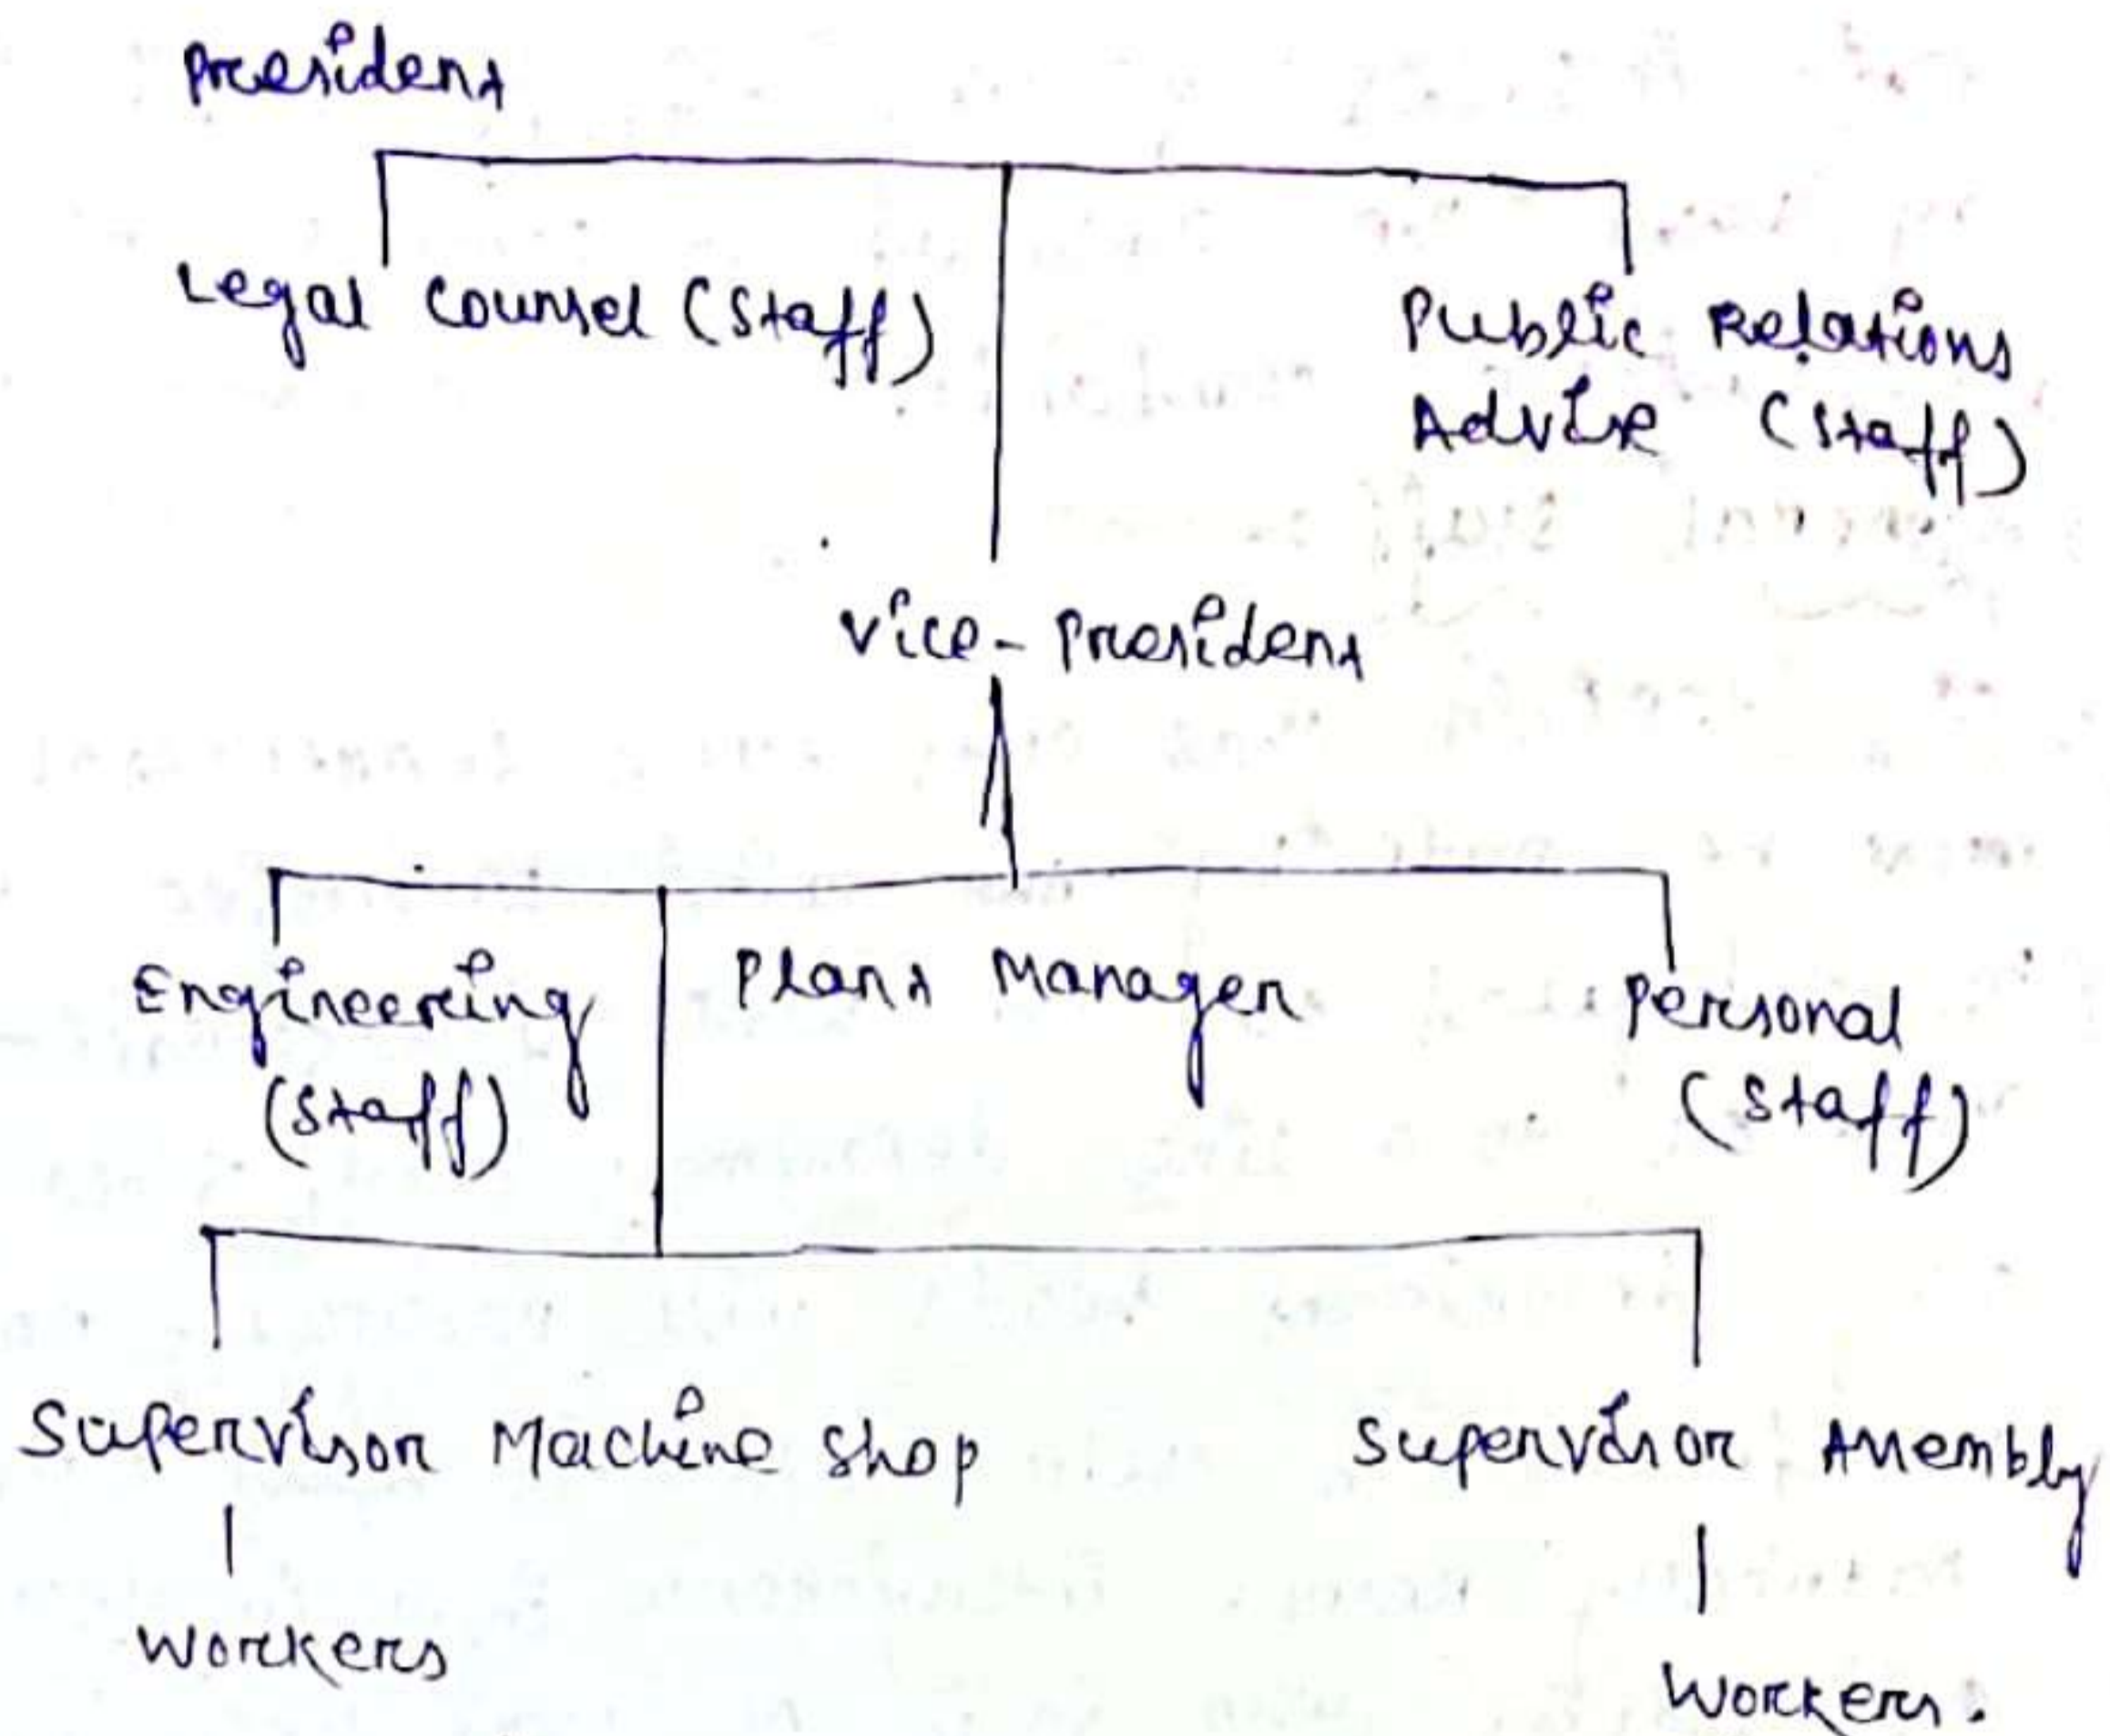 President
Legal Counsel (Staff)
Public Relations
Advise (Staff)
Vice-President
Engineering
(Staff)
Plant Manager
Personal
(Staff)
Supervisor Machine Shop
Supervisor Assembly
Workers
Workers.